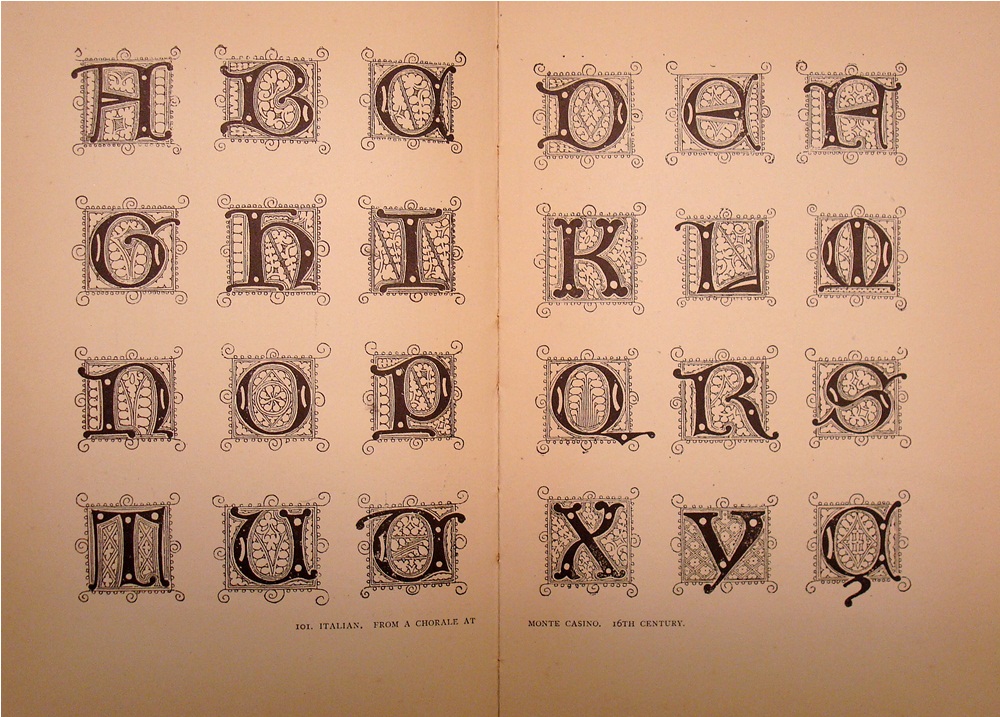 A B C D E F
G H I K L M
N O P Q R S
T U X Y
101. ITALIAN, FROM A CHORALE AT MONTE CASINO. 16TH CENTURY.